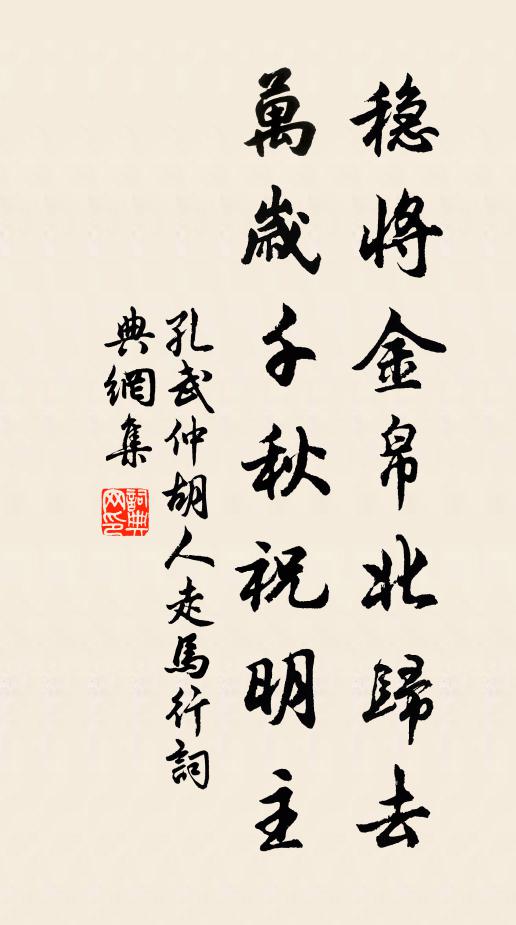 穩將金帛北歸去
萬歲千秋祝明主
孔武仲胡人走馬行詞
典網集
詞典网印